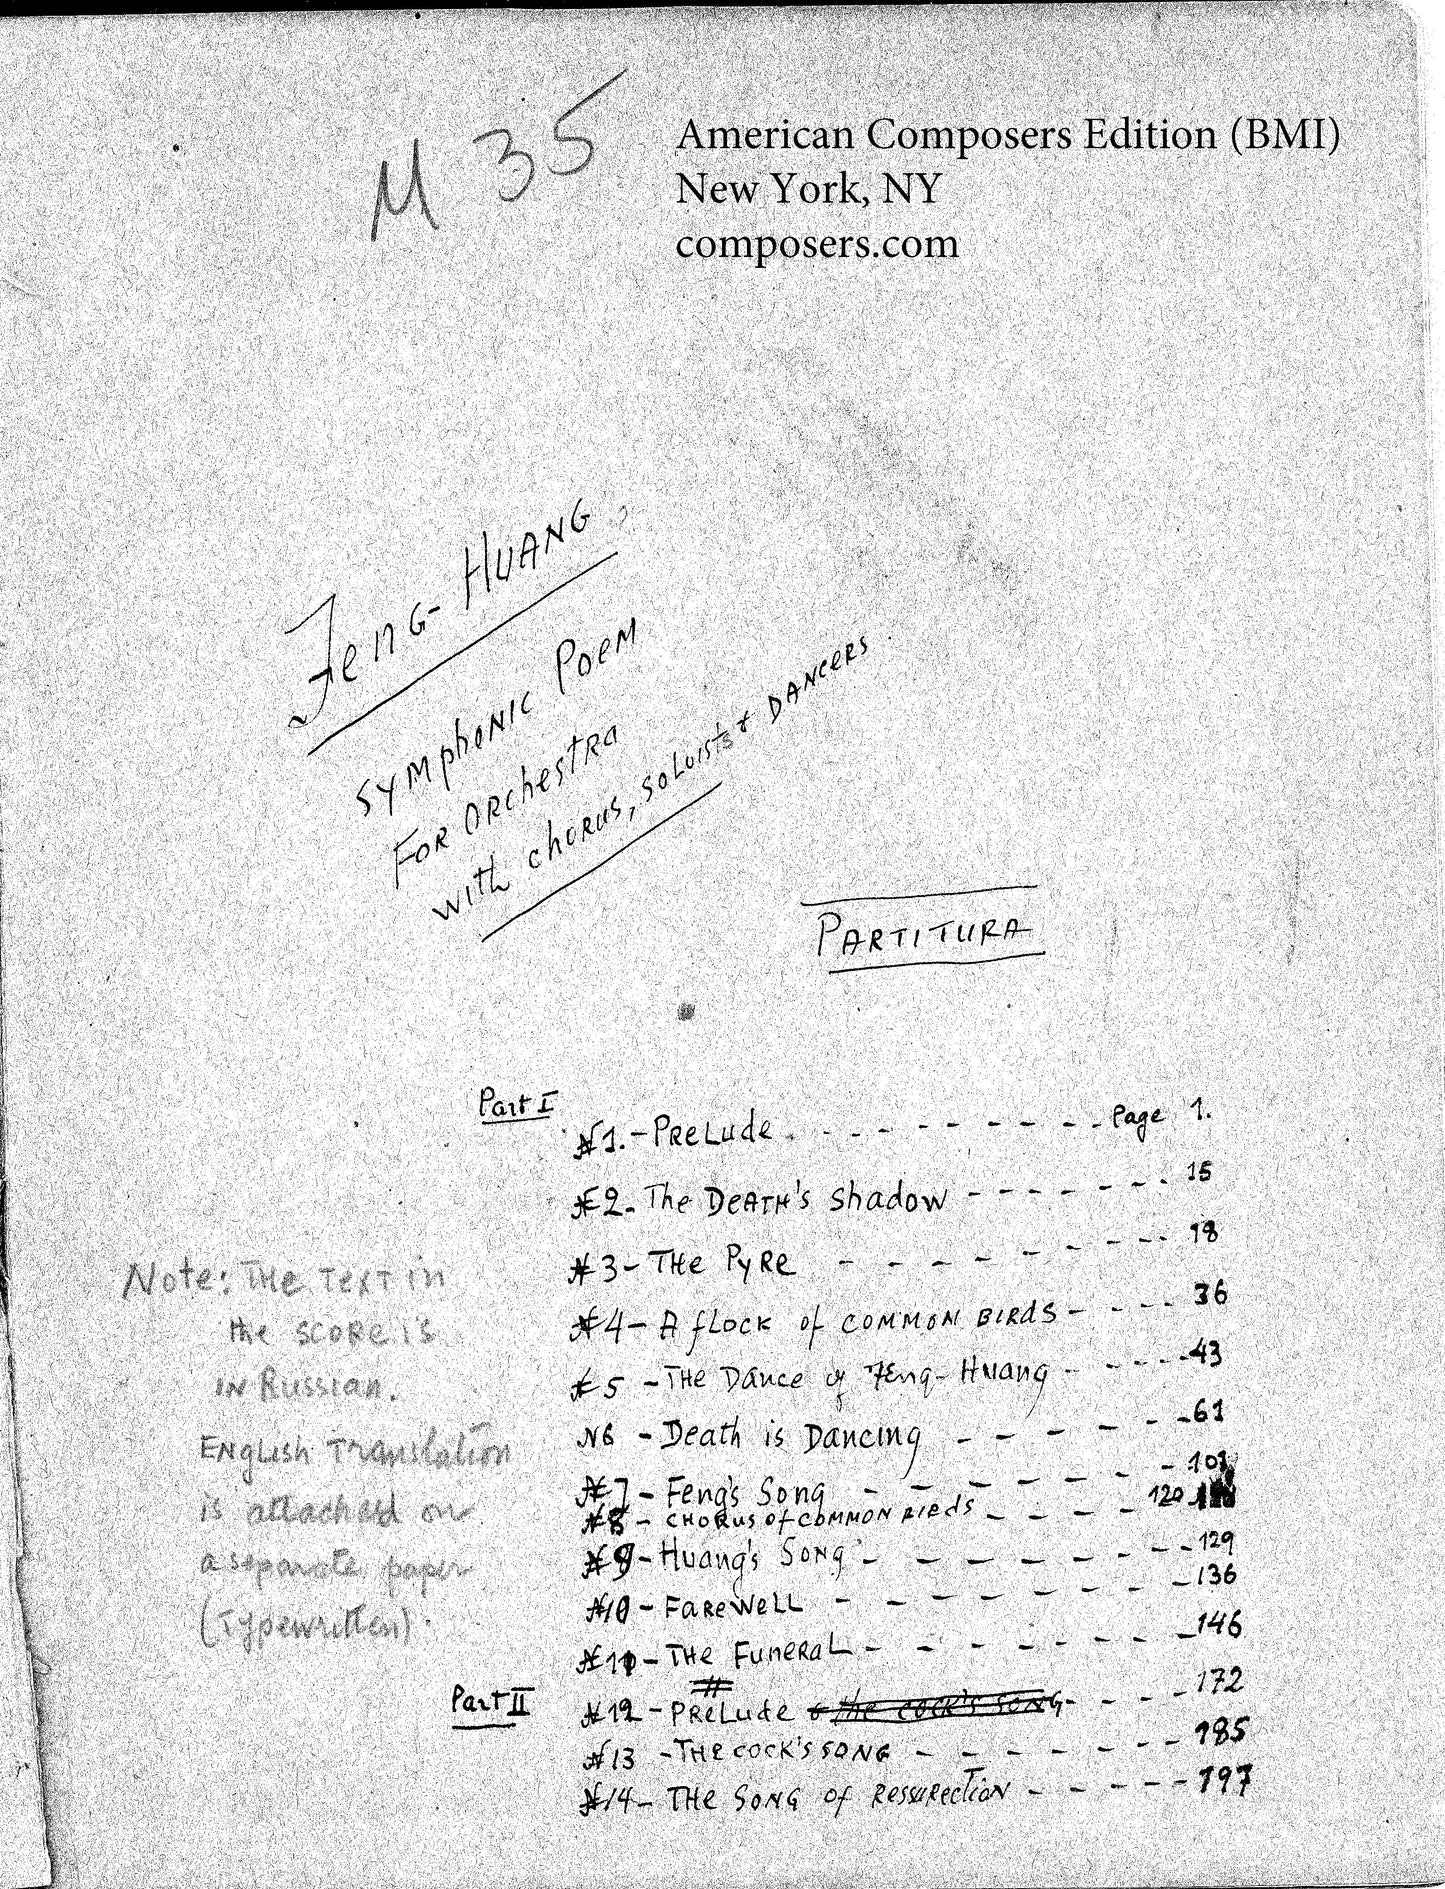 M 35
American Composers Edition (BMI)
New York, NY
composers.com
Feng-Huang
Symphonic Poem
For Orchestra
with chorus, soloists & Dancers.
Partitura
Part I
№1.-Prelude. - - - - - - - - Page 1.
№2- The Death's Shadow - - - - - - - 15
№3- The Pyre - - - - - - - - 18
№4- A flock of common Birds - - - - 36
№5 - The Dance of Feng-Huang - - - - - 43
№6 - Death is Dancing - - - - - - 61
№7- Feng's Song - - - - - - - 101
№8 - Chorus of common Birds - - - - 120
№9- Huang's Song - - - - - - - - 129
№10- Farewell - - - - - - - - 136
№11- The Funeral - - - - - - - - 146
Part II
№12- Prelude & the cock's song - - - - 172
№13 - The cock's song - - - - - - - 185
№14- The Song of Ressurection - - - - - 197
Note: The text in
the score is
in Russian.
English Translation
is attached on
a separate paper
(Typewritten).